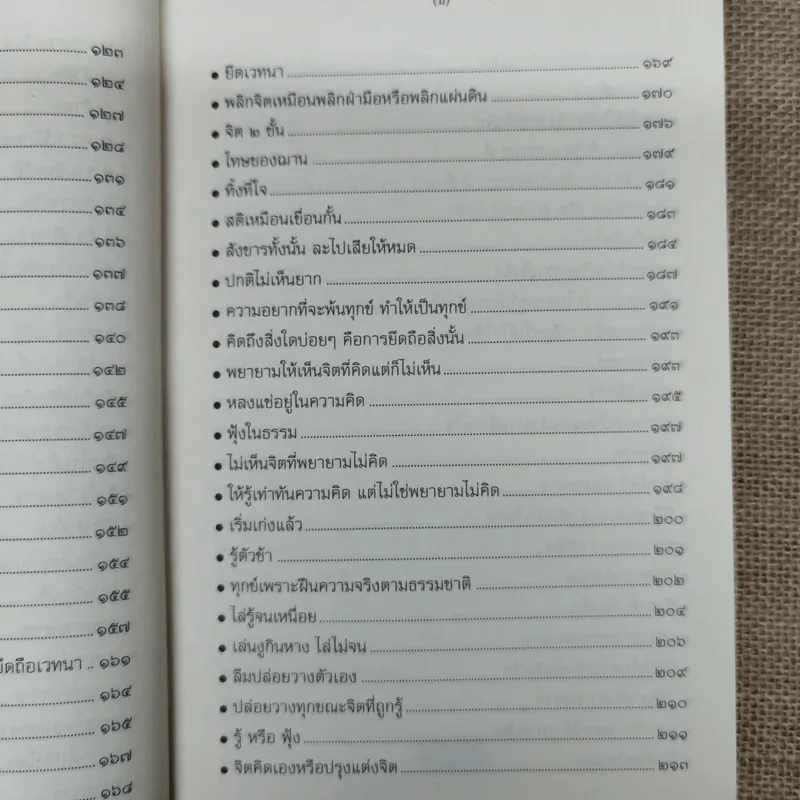 ๑๒๓
๑๒๔
๑๒๗
๑๒๘
๑๓๑
๑๓๔
๑๓๖
๑๓๗
๑๓๘
๑๔๐
๑๔๒
๑๔๕
๑๔๗
๑๔๙
๑๕๑
๑๕๒
๑๕๔
๑๕๕
๑๕๗
ยึดถือเวทนา .. ๑๖๑
๑๖๔
๑๖๕
๑๖๗
๑๖๘
• ยึดเวทนา ๑๖๙
• พลิกจิตเหมือนพลิกฝ่ามือหรือพลิกแผ่นดิน ๑๗๐
• จิต ๒ ชั้น ๑๗๖
• โทษของฌาน ๑๗๙
• ทิ้งที่ใจ ๑๘๑
• สติเหมือนเขื่อนกั้น ๑๘๓
• สังขารทั้งนั้น ละไปเสียให้หมด ๑๘๕
• ปกติไม่เห็นยาก ๑๘๗
• ความอยากที่จะพ้นทุกข์ ทำให้เป็นทุกข์ ๑๙๑
• คิดถึงสิ่งใดบ่อยๆ คือการยึดถือสิ่งนั้น ๑๙๓
• พยายามให้เห็นจิตที่คิดแต่ก็ไม่เห็น ๑๙๓
• หลงแช่อยู่ในความคิด ๑๙๕
• ฟุ้งในธรรม ๑๙๗
• ไม่เห็นจิตที่พยายามไม่คิด ๑๙๗
• ให้รู้เท่าทันความคิด แต่ไม่ใช่พยายามไม่คิด ๑๙๘
• เริ่มเก่งแล้ว ๒๐๐
• รู้ตัวช้า ๒๐๑
• ทุกข์เพราะฝืนความจริงตามธรรมชาติ ๒๐๒
• ไล่รู้จนเหนื่อย ๒๐๔
• เล่นงูกินหาง ไล่ไม่จน ๒๐๖
• ลืมปล่อยวางตัวเอง ๒๐๙
• ปล่อยวางทุกขณะจิตที่ถูกรู้ ๒๑๐
• รู้ หรือ ฟุ้ง ๒๑๑
• จิตคิดเองหรือปรุงแต่งจิต ๒๑๓